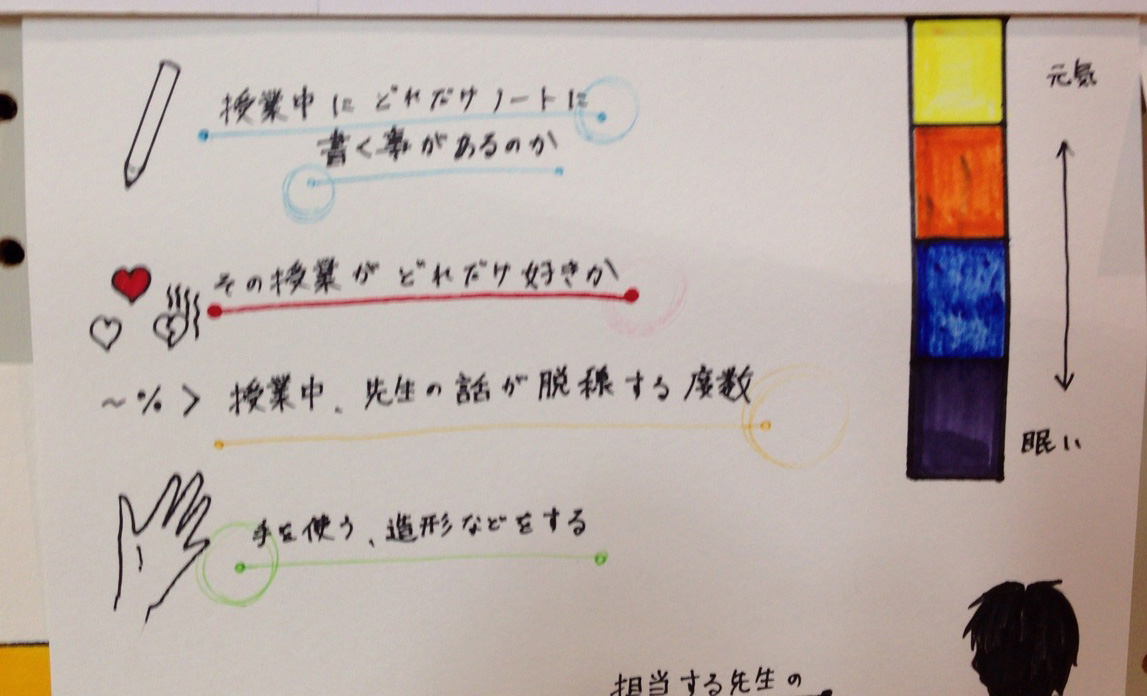 授業中にどれだけノートに
書く事があるのか
その授業がどれだけ好きか
~%> 授業中、先生の話が脱線する度数
手を使う、造形などをする
元気
眠い
担当する先生の